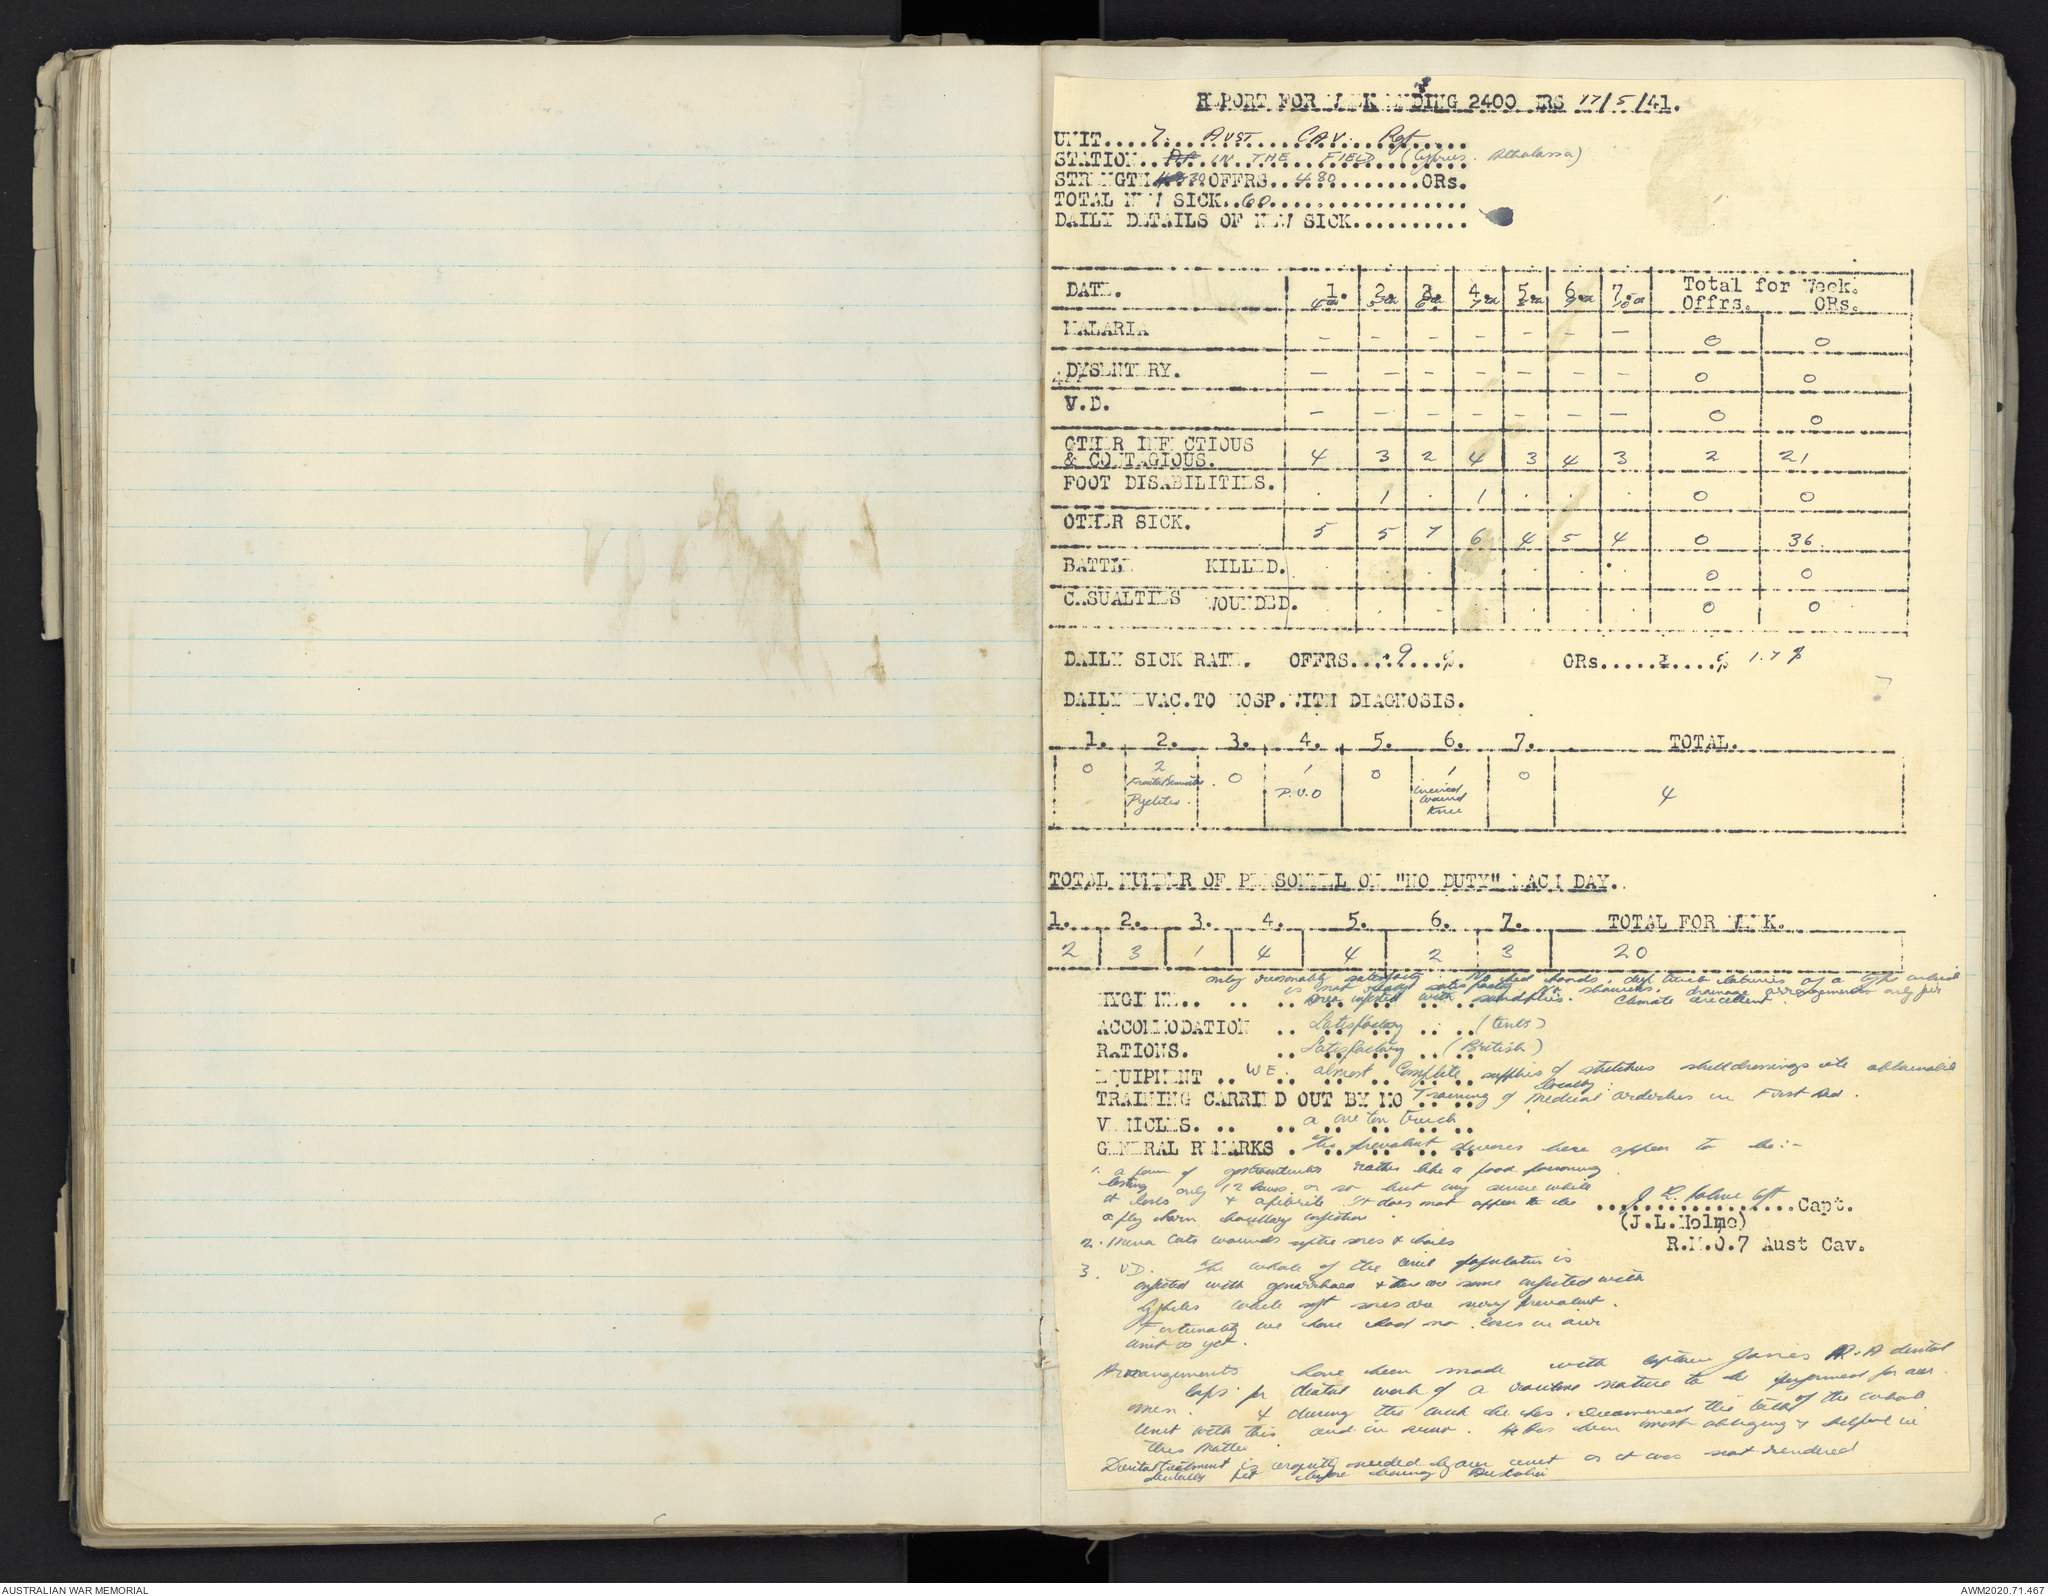 REPORT FOR WEEK ENDING 2400 HRS 17/5/41.
UNIT....7. AUST CAV. Rgt.....
STATION.. IN THE FIELD (Cyprus. Athalassa)
STRENGTH 30 OFFRS..480..........ORs.
TOTAL NEW SICK..60..................
DAILY DETAILS OF NEW SICK..........
DATE. 1. 2. 3. 4. 5. 6. 7. Total for Week.
4th 5th 6th 7th 8th 9th 10th Offrs. ORs.
MALARIA – – – – – – – 0 0
DYSENTERY. – – – – – – – 0 0
V.D. – – – – – – – 0 0
OTHER INFECTIOUS
& CONTAGIOUS. 4 3 2 4 3 4 3 2 21
FOOT DISABILITIES. . 1 . 1 . . . 0 0
OTHER SICK. 5 5 7 6 4 5 4 0 36
BATTLE KILLED. . . . . . . . 0 0
CASUALTIES WOUNDED. . . . . . . . 0 0
DAILY SICK RATE. OFFRS....9...%. ORs.........% 1.7 %
DAILY EVAC.TO HOSP.WITH DIAGNOSIS.
1. 2. 3. 4. 5. 6. 7. TOTAL.
0 2 0 1 0 1 0 4
Frontal Sinusitis P.U.O incised
Pyelitis. wound
knee
TOTAL NUMBER OF PERSONNEL ON "NO DUTY" EACH DAY.
1. 2. 3. 4. 5. 6. 7. TOTAL FOR WEEK.
2 3 1 4 4 2 3 20
only reasonably satisfactory. No deep trench latrines of a type which
is not really satisfactory No showers. drainage arrangements only fair
HYGIENE.. .. .. Area infested with sandflies. Climate excellent.
ACCOMMODATION .. Satisfactory .. (tents)
RATIONS. .. Satisfactory .. (British)
EQUIPMENT .. W E. almost complete supplies of stretchers shell dressings etc obtainable
locally.
TRAINING CARRIED OUT BY MO Training of medical orderlies in First Aid.
VEHICLES. .. .. a one ton truck
GENERAL REMARKS . The prevalent diseases here appear to be:-
1. a form of gastroenteritis rather like a food poisoning
lasting only 12 hours or so but very severe while
it lasts & afebrile. It does not appear to be
a fly born bacillary infection.
.................Capt.
(J.L.Holme)
R.M.O.7 Aust Cav.
2. Minor cuts wounds septic sores & boils
3. V.D. The whole of the civil population is
infected with gonorrhoea & there are some infected with
Syphilis while soft sores are very prevalent.
Fortunately we have had no cases in our
unit as yet.
Arrangements have been made with Captain Jones dental
for dental work of a routine nature to be performed for our
men. & during the week he has examined the teeth of the whole
unit with this end in view. He has been most obliging & helpful in
this matter.
Dental treatment is urgently needed by our unit as it was not rendered
dentally fit before leaving Australia
AUSTRALIAN WAR MEMORIAL
AWM2020.71.467